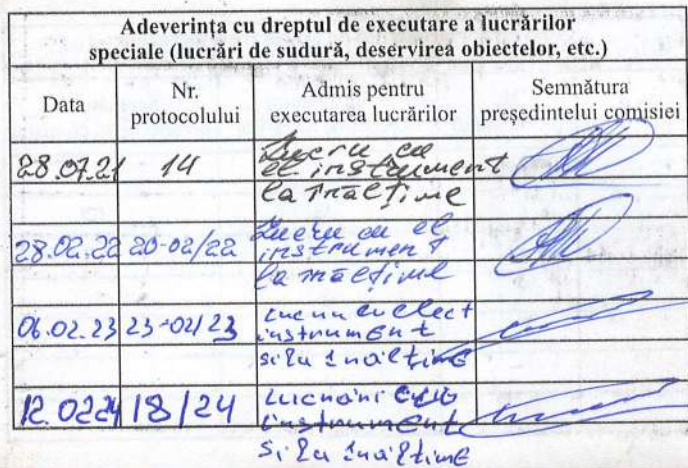 Adeverința cu dreptul de executare a lucrărilor
speciale (lucrări de sudură, deservirea obiectelor, etc.)
Data Nr. protocolului Admis pentru executarea lucrărilor Semnătura președintelui comisiei
28.07.21 14 Lucru cu
el instrument
la înălțime
28.02.22 20-02/22 Lucru cu el
instrument
la înălțime
06.02.23 23-02/23 Lucru cu elect
instrument
si la înălțime
12.0224 18/24 Lucrări
instrument
si la înălțime